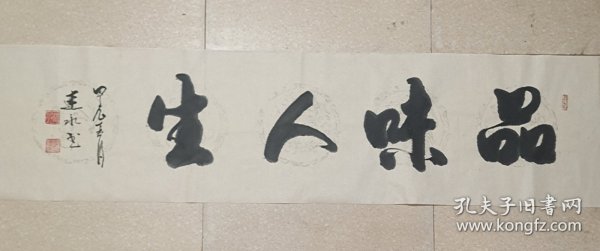 品味人生
甲辰年五月
建水書
孔夫子旧书网
www.kongfz.com